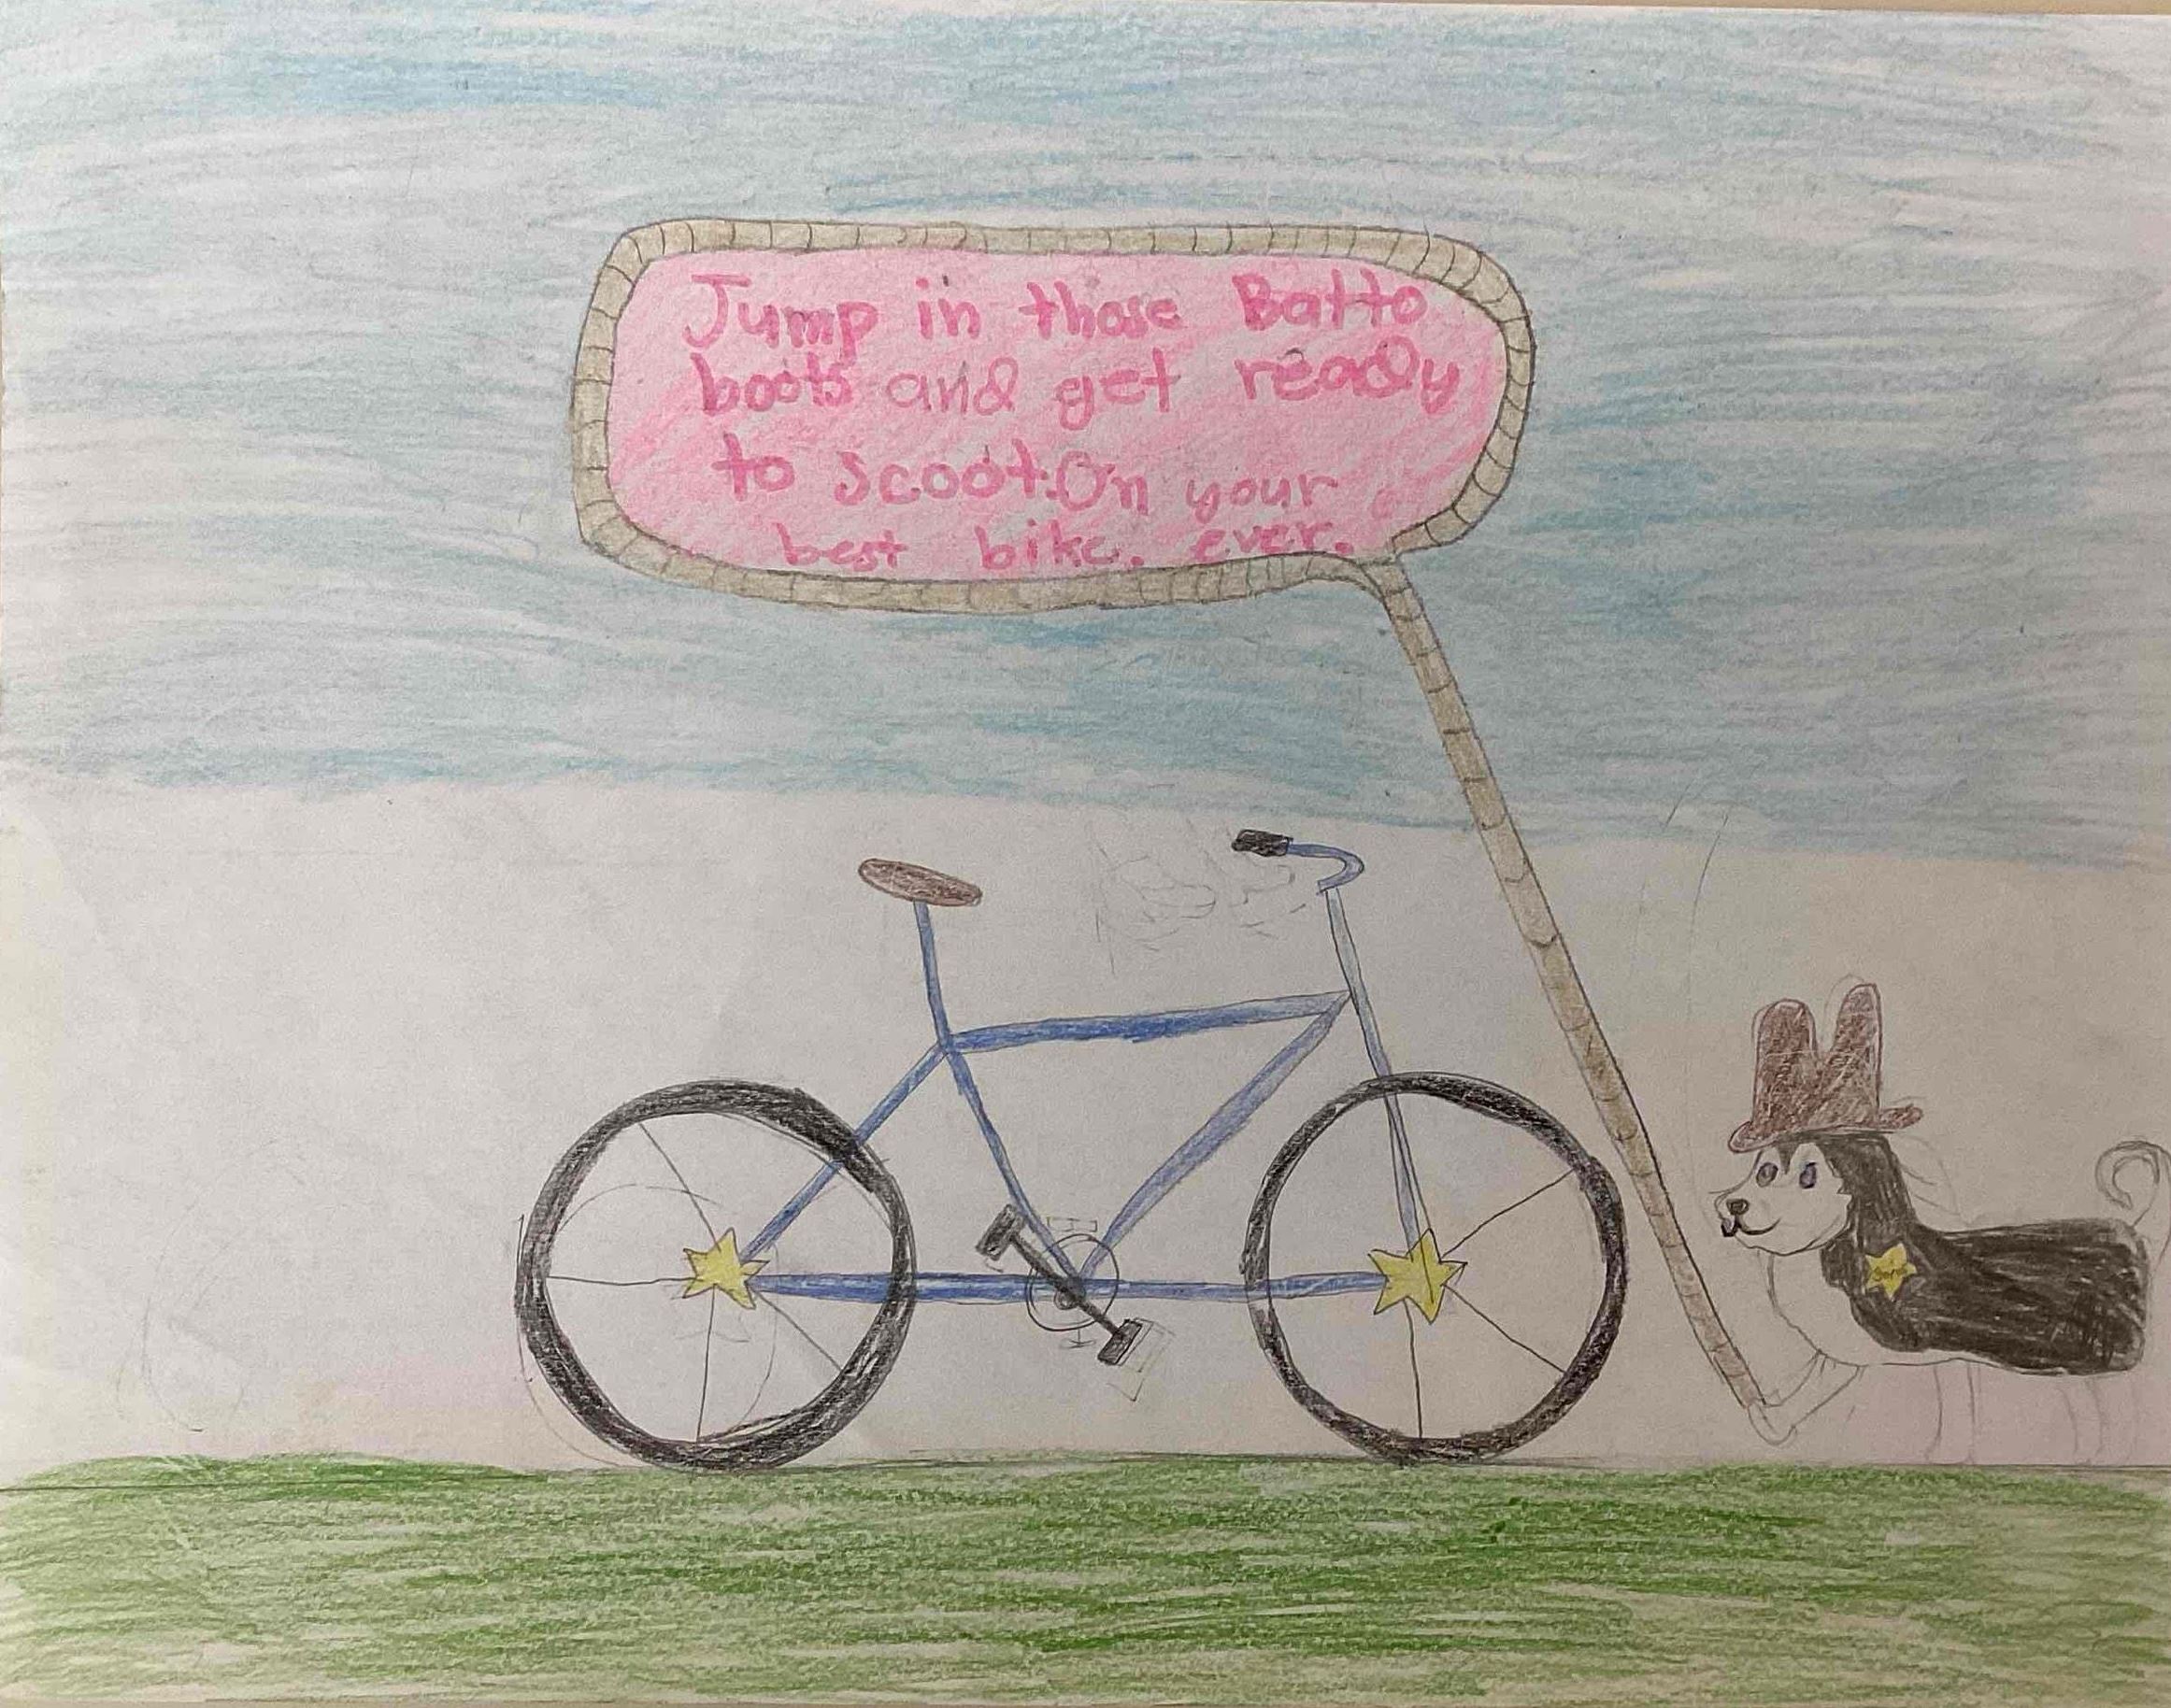 Jump in those Batto
boots and get ready
to scoot. On your
best bike. ever.